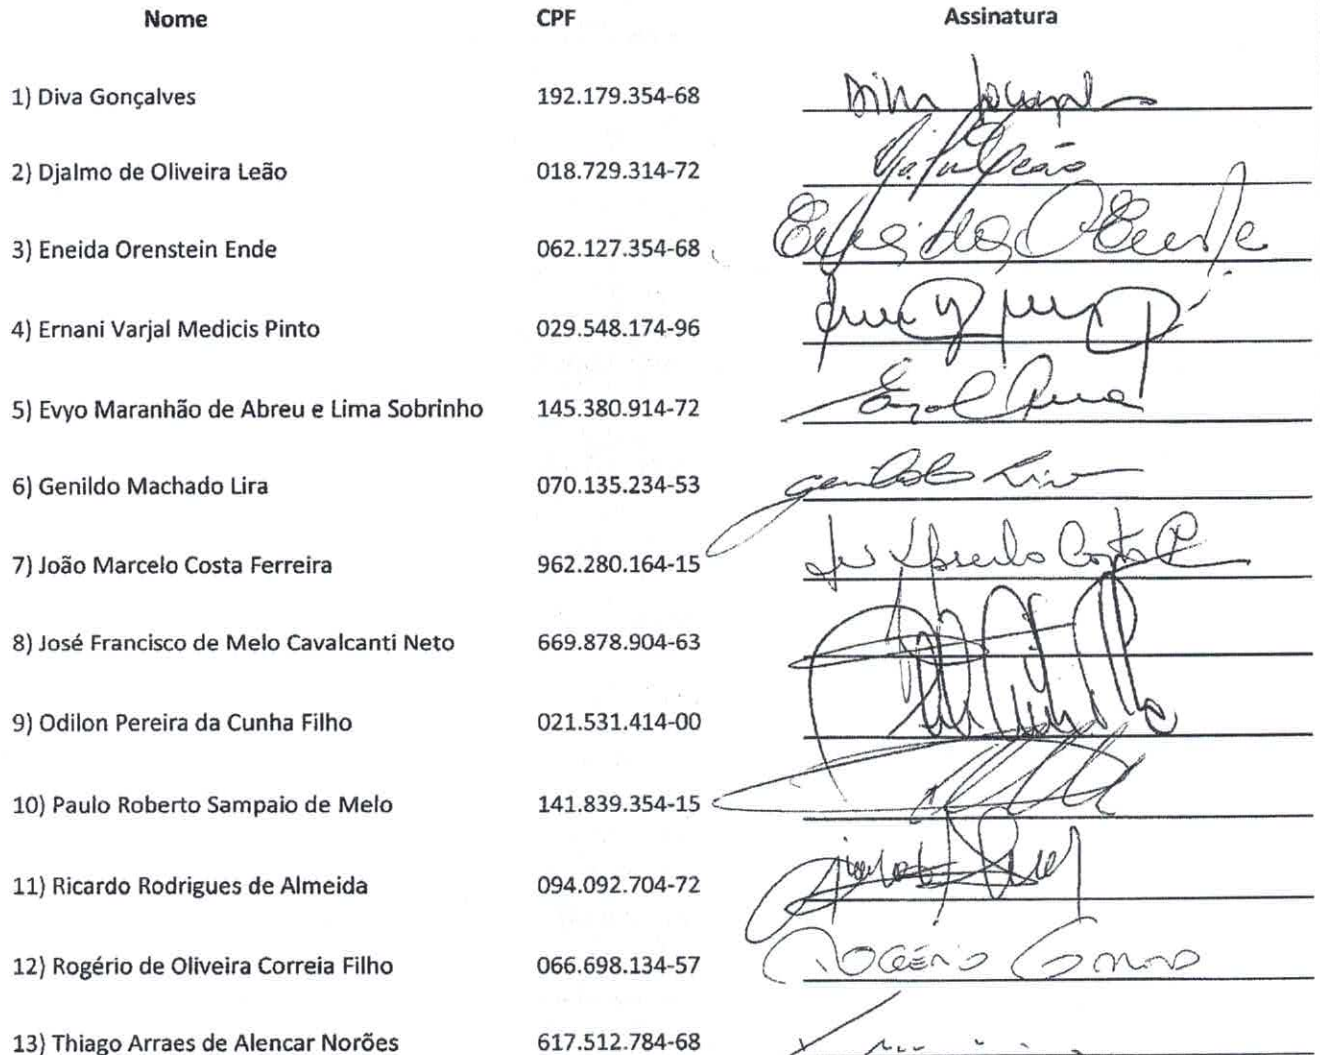 Nome CPF Assinatura
1) Diva Gonçalves 192.179.354-68
2) Djalmo de Oliveira Leão 018.729.314-72 Leão
3) Eneida Orenstein Ende 062.127.354-68
4) Ernani Varjal Medicis Pinto 029.548.174-96
5) Evyo Maranhão de Abreu e Lima Sobrinho 145.380.914-72
6) Genildo Machado Lira 070.135.234-53 Genildo Lira
7) João Marcelo Costa Ferreira 962.280.164-15 Costa
8) José Francisco de Melo Cavalcanti Neto 669.878.904-63
9) Odilon Pereira da Cunha Filho 021.531.414-00
10) Paulo Roberto Sampaio de Melo 141.839.354-15
11) Ricardo Rodrigues de Almeida 094.092.704-72
12) Rogério de Oliveira Correia Filho 066.698.134-57 ROGÉRIO
13) Thiago Arraes de Alencar Norões 617.512.784-68